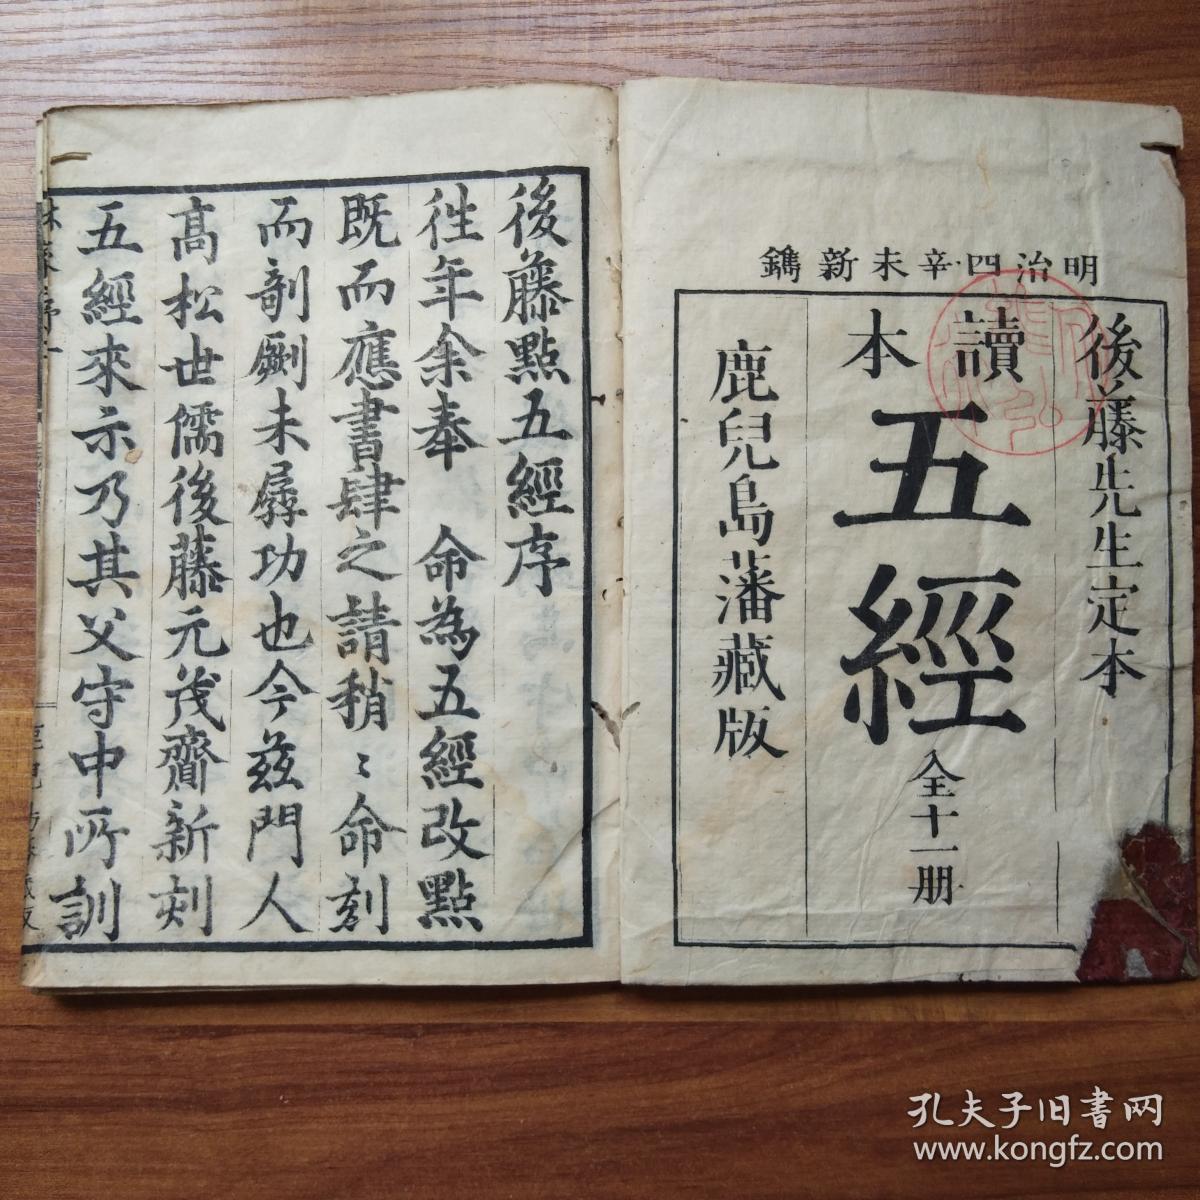 明治四辛未新鐫
後藤先生定本
讀本
五經
全十一冊
鹿兒島藩藏版
後藤點五經序
往年余奉 命為五經改點
既而應書肆之請稍〻命刻
而剞劂未孱功也今茲門人
髙松世儒後藤元茂齎新刻
五經來示乃其父守中所訓
孔夫子旧书网
www.kongfz.com